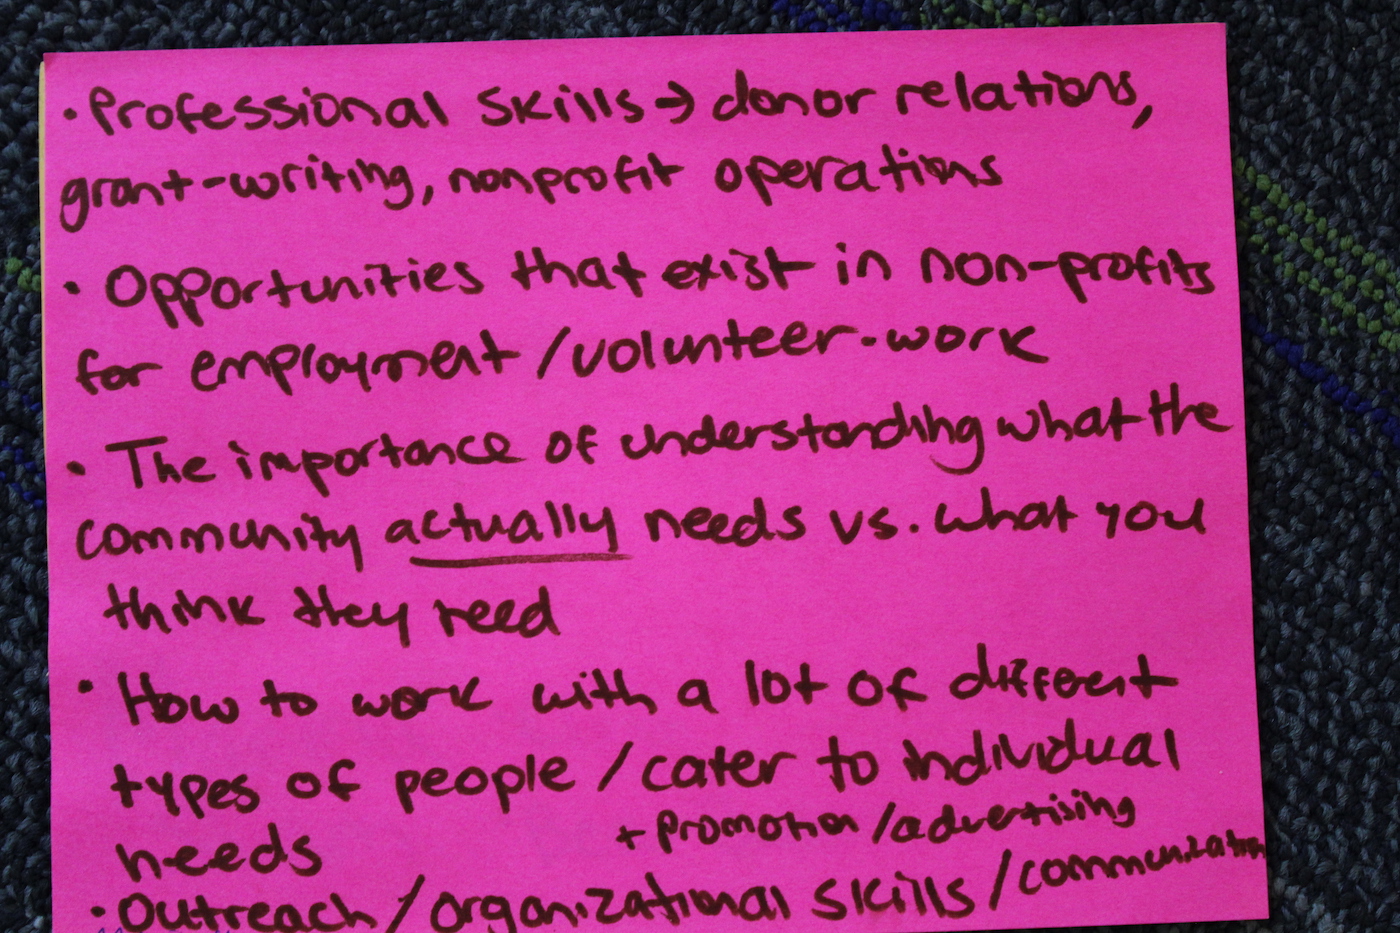 • Professional skills → donor relations,
grant-writing, nonprofit operations
• Opportunities that exist in non-profits
for employment / volunteer-work
• The importance of understanding what the
community actually needs vs. what you
think they need
• How to work with a lot of different
types of people / cater to individual
needs
+ promotion / advertising
• Outreach / organizational skills / communication